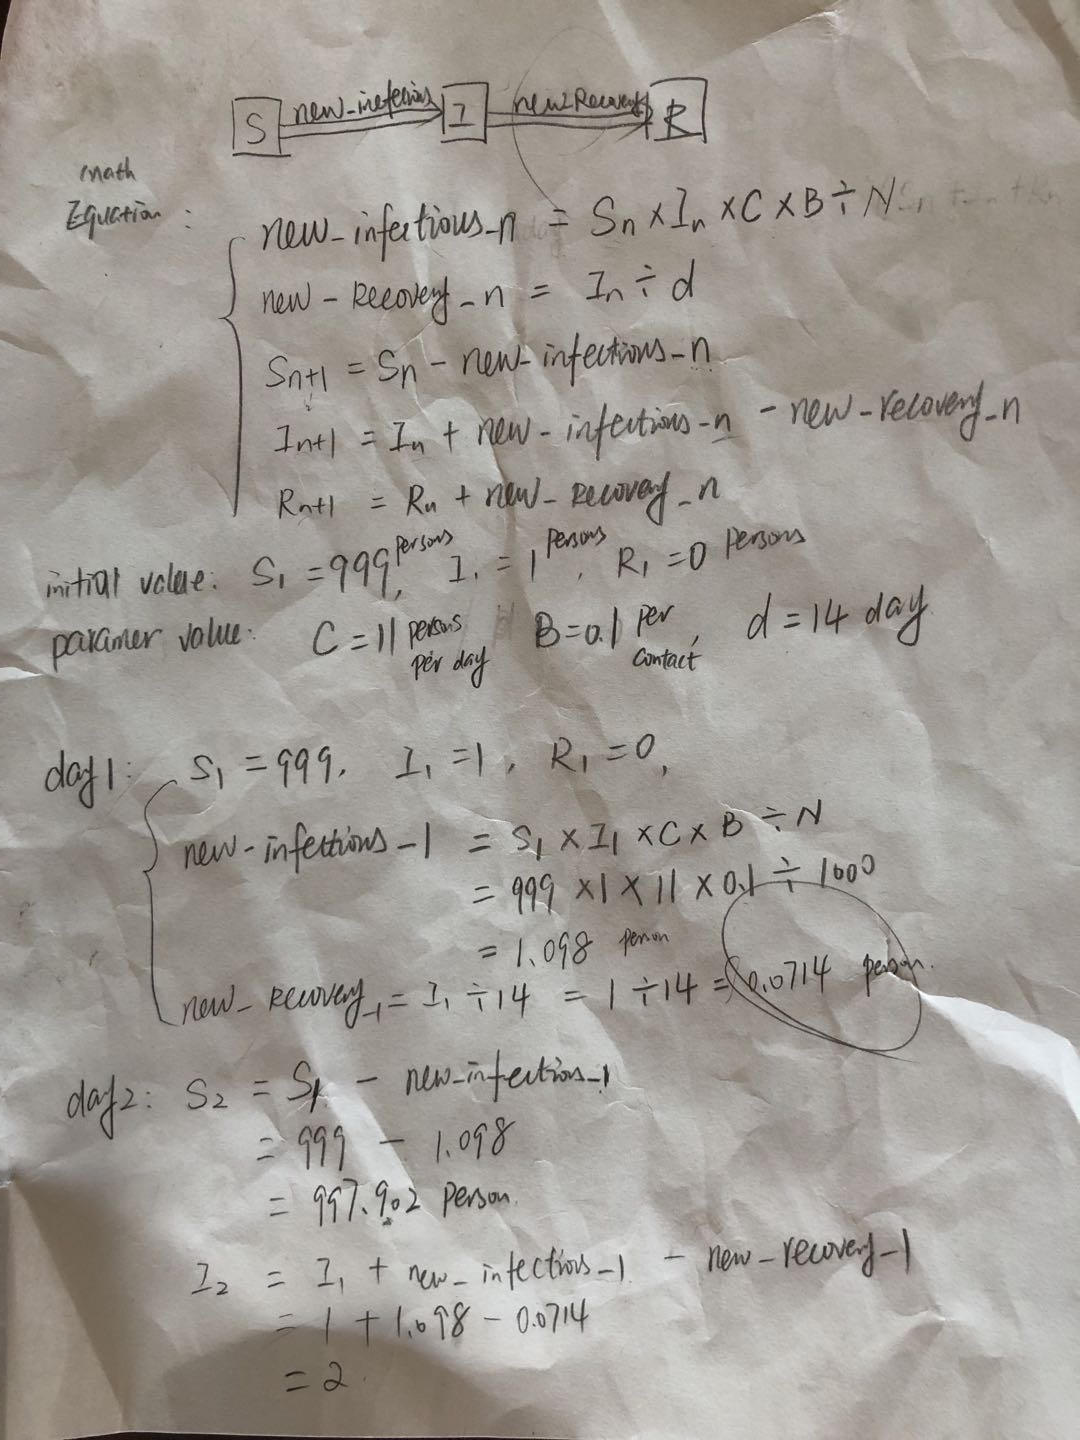 S new_inefections I new_Recovery R
math
Equation :
new_infections_n = Sn × In × C × B ÷ N
new - Recovery - n = In ÷ d
Sn+1 = Sn - new_infections_n
In+1 = In + new_infections_n - new_recovery_n
Rn+1 = Rn + new_Recovery_n
initial value: S1 = 999 persons, I1 = 1 persons, R1 = 0 persons
paramer value: C = 11 persons per day B = 0.1 per contact, d = 14 day
day1: S1 = 999, I1 = 1, R1 = 0,
new-infections-1 = S1 × I1 × C × B ÷ N
= 999 × 1 × 11 × 0.1 ÷ 1000
= 1.098 person
new_Recovery_1 = I1 ÷ 14 = 1 ÷ 14 = 0.0714 person.
day2: S2 = S1 - new_infections_1
= 999 - 1.098
= 997.902 person.
I2 = I1 + new_infections_1 - new_recovery_1
= 1 + 1.098 - 0.0714
= 2